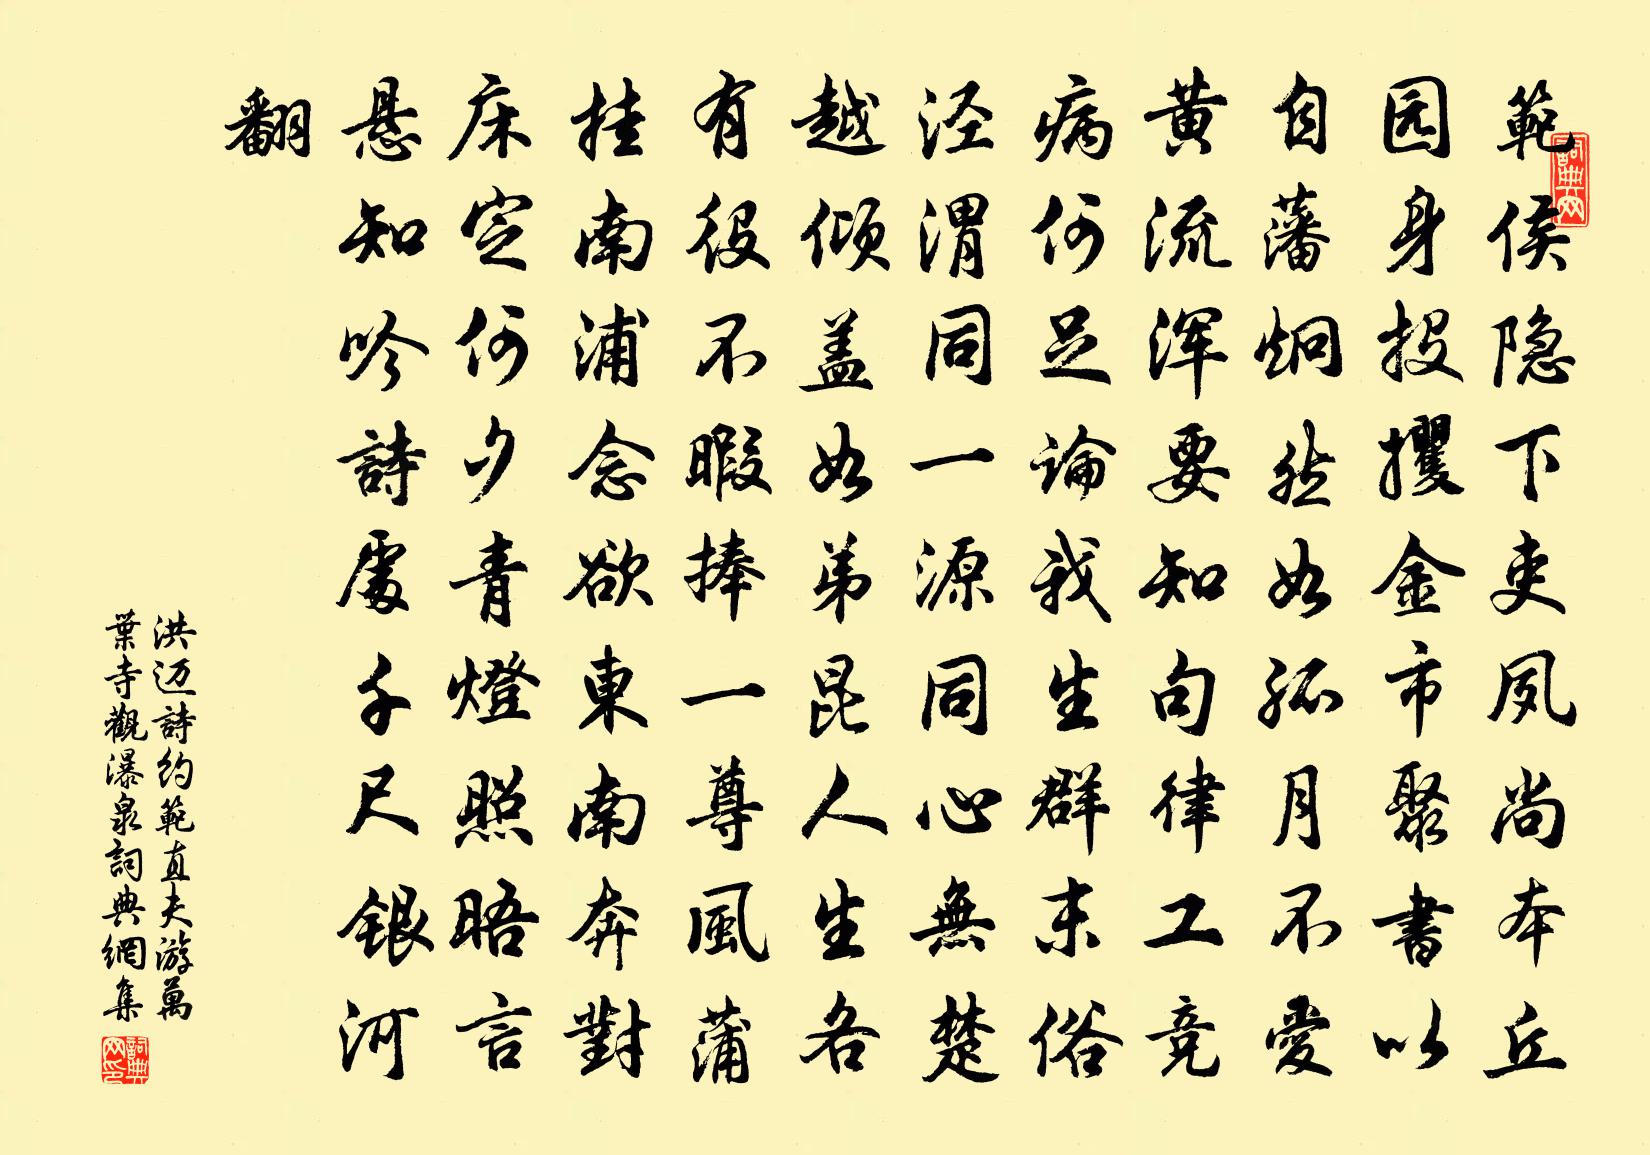 範侯隐下吏夙尚本丘
园身投攫金市聚書以
自藩炯然如孤月不爱
黄流浑要知句律工竞
病何足論我生群末俗
泾渭同一源同心無楚
越倾盖如弟昆人生各
有役不暇捧一尊風蒲
挂南浦念欲東南奔對
床定何夕青燈照晤言
悬知吟詩處千尺銀河
翻
洪迈詩約範直夫游萬
葉寺觀瀑泉詞典網集
詞典网
詞典网印